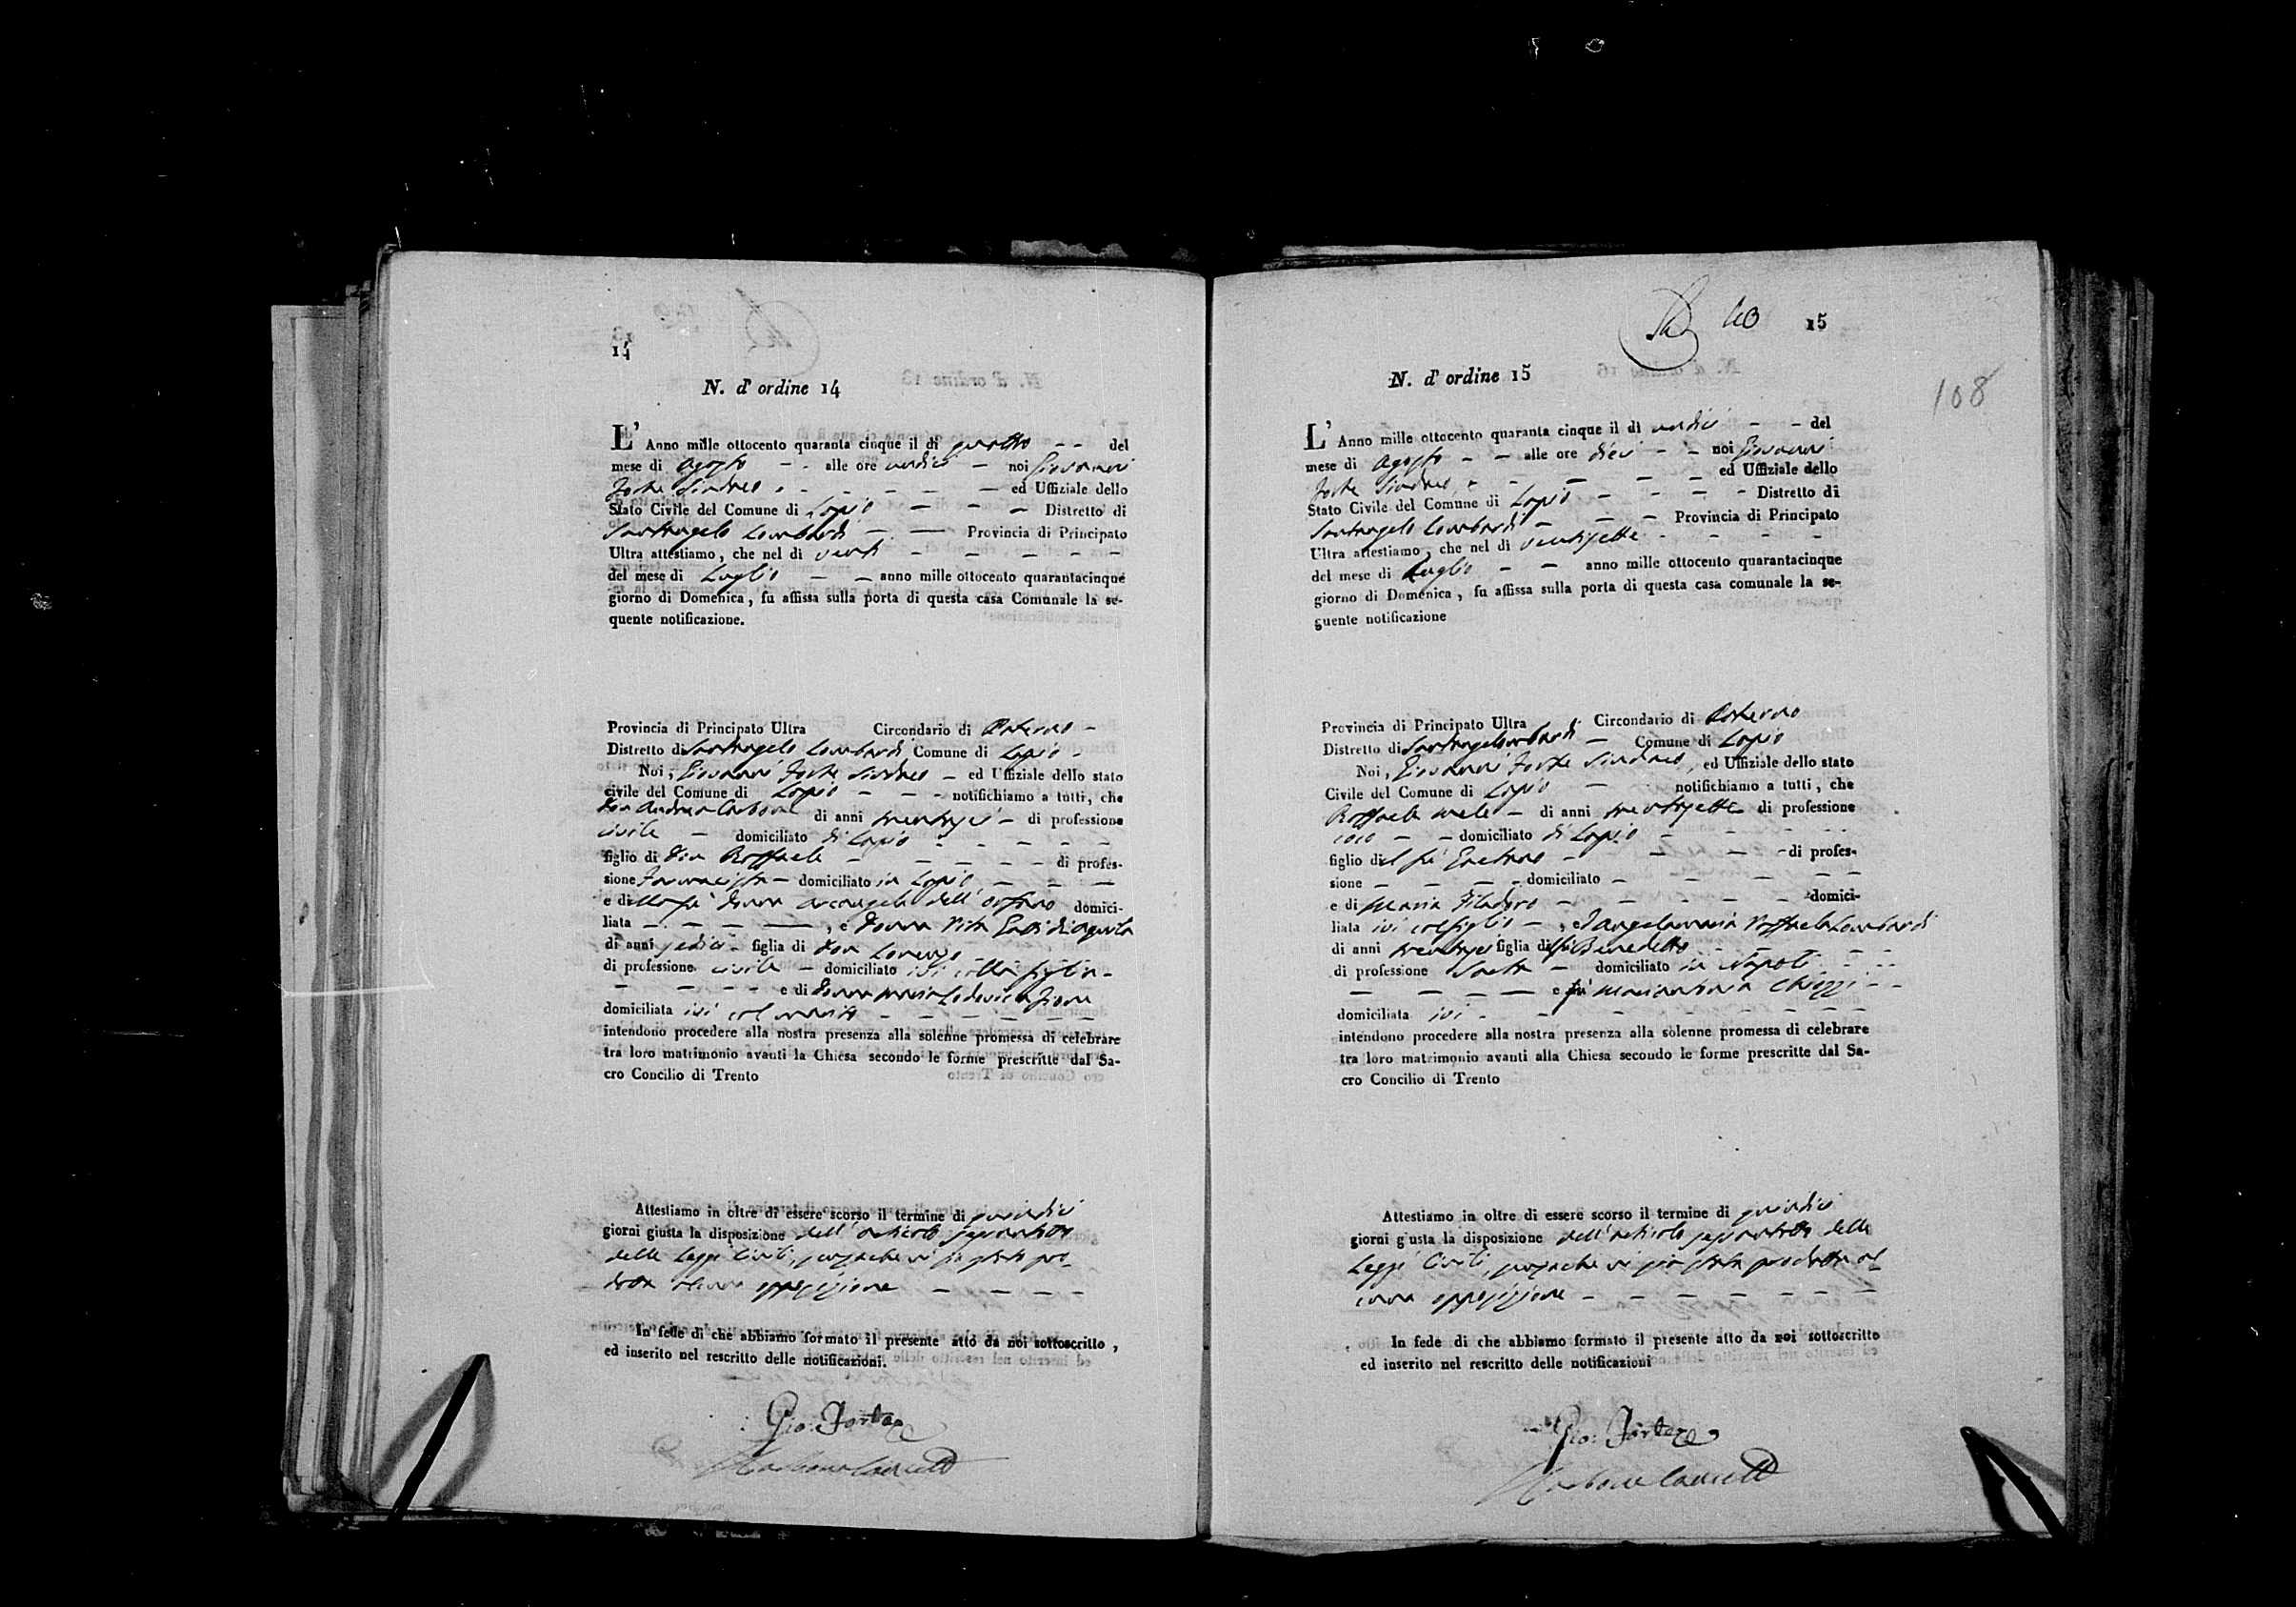 14
N. d' ordine 14
L' Anno mille ottocento quaranta cinque il dì quattro - - del
mese di Agosto - - alle ore undici - noi Giovanni
Forte Sindaco - - - - - - ed Uffiziale dello
Stato Civile del Comune di Lapio - - - Distretto di
Santangelo Lombardi - - Provincia di Principato
Ultra attestiamo, che nel dì venti - - - - - -
del mese di Luglio - - anno mille ottocento quarantacinque
giorno di Domenica, fu affissa sulla porta di questa casa Comunale la se-
quente notificazione.
Provincia di Principato Ultra Circondario di Paterno -
Distretto di Santangelo Lombardi Comune di Lapio -
Noi, Giovanni Forte Sindaco - ed Uffiziale dello stato
civile del Comune di Lapio - - - notifichiamo a tutti, che
Don Andrea Carbone di anni trentasei - di professione
civile - domiciliato di Lapio - - - - -
figlio di Don Raffaele - - - - - - di profes-
sione Farmacista - domiciliato in Lapio - - -
e di della fù Donna Arcangela dell' Orfano domici-
liata - - - - , e Donna Vita
di anni sedici - figlia di Don Lorenzo -
di professione civile - domiciliato ivi colla figlia -
- - - - e di Donna Maria Lodovica Fiore
domiciliata ivi col marito - - - - - -
intendono procedere alla nostra presenza alla solenne promessa di celebrare
tra loro matrimonio avanti la Chiesa secondo le forme prescritte dal Sa-
cro Concilio di Trento
Attestiamo in oltre di essere scorso il termine di quindici
giorni giusta la disposizione dell' articolo sessantotto
delle Leggi Civili, senzache vi sia stata pro-
dotta alcuna opposizione - - - -
In fede di che abbiamo formato il presente atto da noi sottoscritto,
ed inserito nel rescritto delle notificazioni.
Gio: Forte
40 15
108
N. d' ordine 15
L' Anno mille ottocento quaranta cinque il dì undici - - del
mese di Agosto - - alle ore dieci - - noi Giovanni
Forte Sindaco, - - - - - ed Uffiziale dello
Stato Civile del Comune di Lapio - - - - Distretto di
Santangelo Lombardi - - - Provincia di Principato
Ultra attestiamo, che nel dì ventisette - - - -
del mese di Luglio - - anno mille ottocento quarantacinque
giorno di Domenica, fu affissa sulla porta di questa casa comunale la se-
guente notificazione
Provincia di Principato Ultra Circondario di Paterno
Distretto di Santangelo Lombardi - Comune di Lapio
Noi, Giovanni Forte Sindaco, ed Uffiziale dello stato
Civile del Comune di Lapio - notifichiamo a tutti, che
Raffaele Mele - di anni trentasette di professione
- - domiciliato di Lapio - - - - -
figlio del fù Gaetano - - - - di profes-
sione - - - - domiciliato - - - - -
e di Maria - - - - - domici-
liata ivi col figlio - , e D. Angelamaria Raffaela Lombardi
di anni trentasei figlia del fù Benedetto - - - -
di professione Sarta - domiciliato in Napoli - - -
- - - - e fù Mariantonia - -
domiciliata ivi - - - - - - - -
intendono procedere alla nostra presenza alla solenne promessa di celebrare
tra loro matrimonio avanti alla Chiesa secondo le forme prescritte dal Sa-
cro Concilio di Trento
Attestiamo in oltre di essere scorso il termine di quindici
giorni giusta la disposizione dell' articolo sessantotto delle
Leggi Civili, senzache vi sia stata prodotta al-
cuna opposizione - - - - - - -
In fede di che abbiamo formato il presente atto da noi sottoscritto
ed inserito nel rescritto delle notificazioni
Gio: Forte